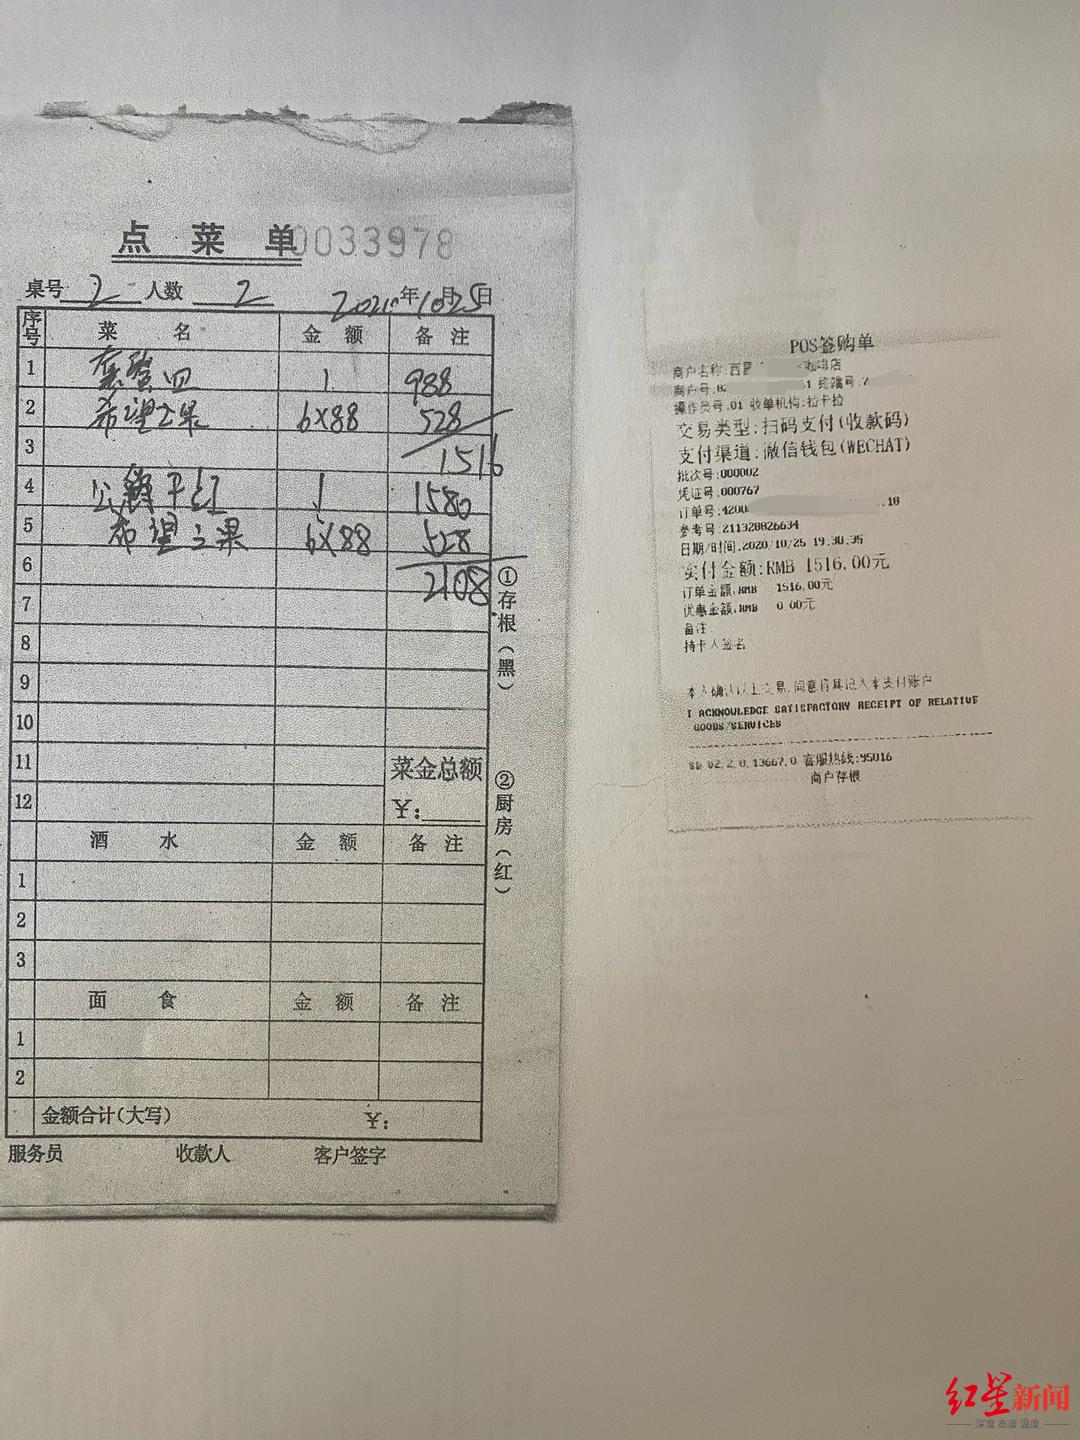 点 菜 单 0033978
桌号 2 人数 2 2020年10月25日
序号 菜 名 金 额 备 注
1 套餐四 1 988
2 希望之果 6X88 528
3 1516
4 公爵干红 1 1580
5 希望之果 6X88 528
6 2108
7
8
9
10
11 菜金总额
12 ¥:
酒 水 金 额 备 注
1
2
3
面 食 金 额 备 注
1
2
金额合计(大写) ¥:
服务员 收款人 客户签字
①存根(黑)
②厨房(红)
POS签购单
商户名称:西 咖啡店
商户号:8 1 终端号:2
操作员号:01 收单机构:拉卡拉
交易类型:扫码支付(收款码)
支付渠道:微信钱包(WECHAT)
批次号:000002
凭证号:000767
订单号:4200 18
参考号:211328826634
日期/时间:2020/10/25 19:30:35
实付金额:RMB 1516.00元
订单金额:RMB 1516.00元
优惠金额:RMB 0.00元
备注:
持卡人签名
本人确认以上交易,同意将其记入本支付账户
I ACKNOWLEDGE SATISFACTORY RECEIPT OF RELATIVE
GOODS/SERVICES
客服热线:95016
商户存根
红星新闻
深度 态度 温度